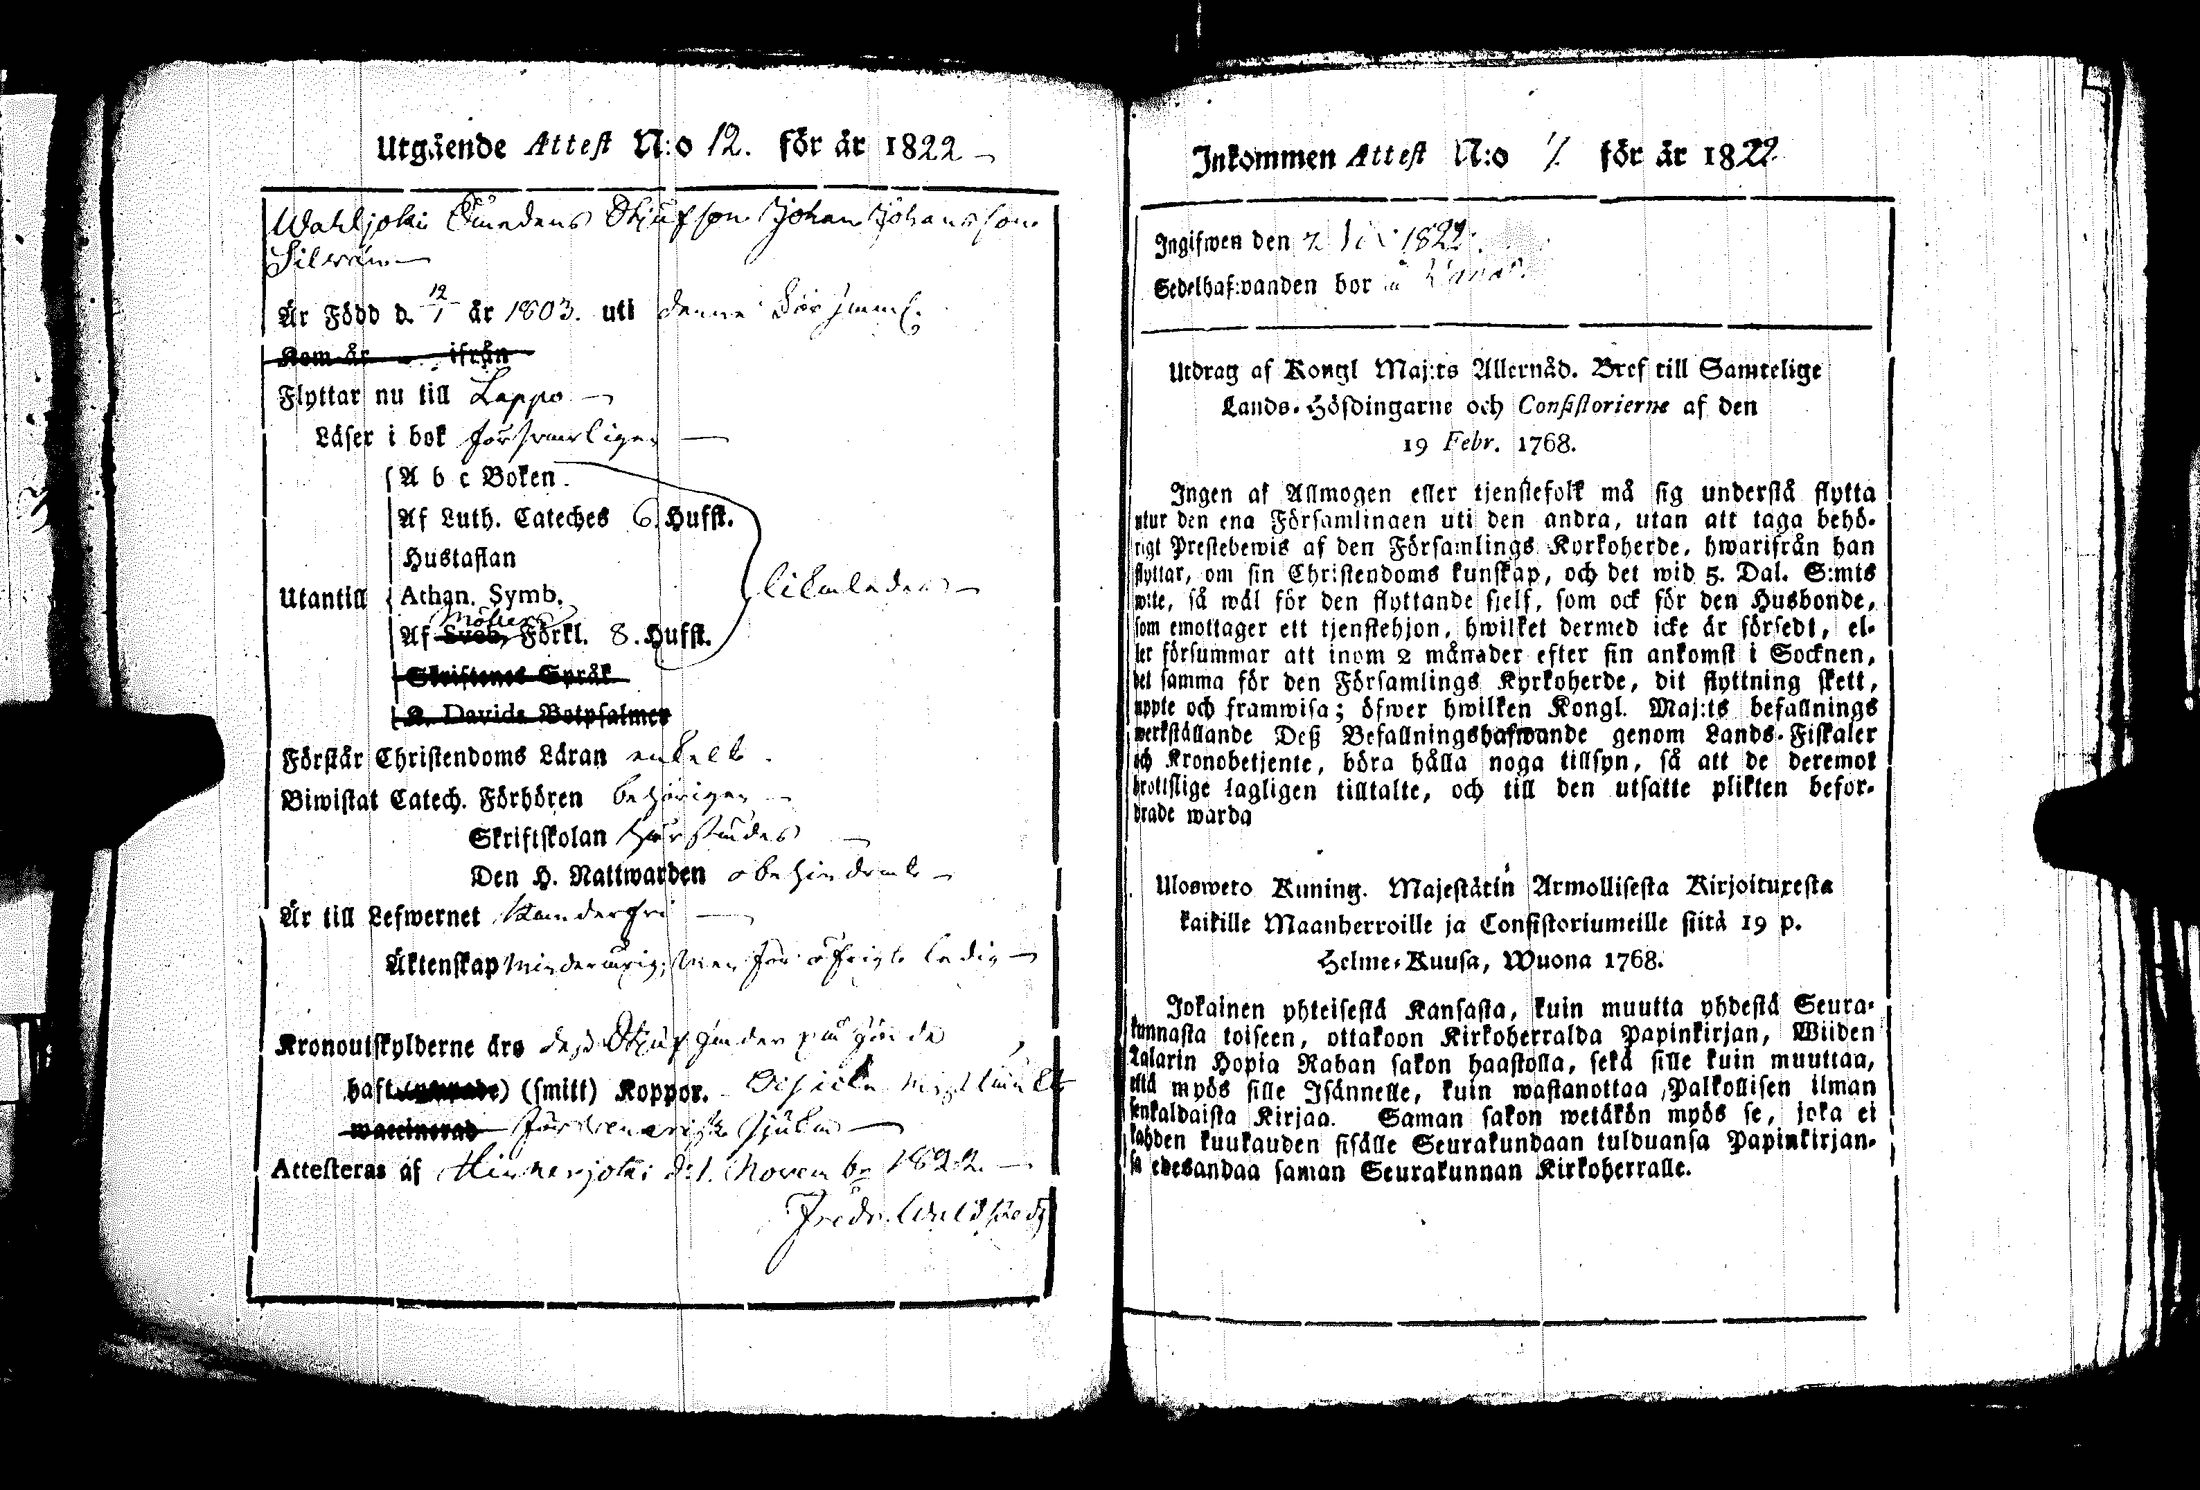 Utgående Attest N:o 12. för år 1822
Wahljoki Johan Johansson
Silvén
Är Född d. 12/1 år 1803. uti denna Församl.
Kom år ifrån
Flyttar nu till Lappo
Läser i bok försvarligen
A b c Boken.
Af Luth. Cateches 6. Hufst.
Hustaflan
Utantill
Athan. Symb.
Möllers
Af Sveb. Förkl. 8. Hufst.
likaledes
Skriftenes Språk
K. Davids Botpsalmer
Förstår Christendoms Läran enkelt.
Biwistat Catech. Förhören behörigen
Skriftskolan härstädes
Den H. Nattwarden obehindrat
Är till Lefwernet klanderfri
Äktenskap minderårig, men för öfrigt ledig
Kronoutskylderne äro dess
haft (ympade) (smitt) Koppor.
waccinerad
Attesteras af Hinnerjoki d. 1. Novembr 1822.
Fredr.
Inkommen Attest N:o för år 1822.
Ingifwen den 1822.
Sedelhafwanden bor
Utdrag af Kongl Maj:ts Allernåd. Bref till Samtelige
Lands-Höfdingarne och Consistorierne af den
19 Febr. 1768.
Ingen af Allmogen eller tjenstefolk må sig understå flytta
utur den ena Församlingen uti den andra, utan att taga behö-
rigt Prestebewis af den Församlings Kyrkoherde, hwarifrån han
flyttar, om sin Christendoms kunskap, och det wid 5. Dal. S:mts
wite, så wäl för den flyttande sjelf, som ock för den Husbonde,
som emottager ett tjenstehjon, hwilket dermed icke är försedt, el-
ler försummar att inom 2 månader efter sin ankomst i Socknen,
det samma för den Församlings Kyrkoherde, dit flyttning skett,
uppte och framwisa; öfwer hwilken Kongl. Maj:ts befallnings
werkställande Deß Befallningshafwande genom Lands-Fiskaler
och Kronobetjente, böra hålla noga tillsyn, så att de deremot
brottslige lagligen tilltalte, och till den utsatte plikten befor-
drade warda
Ulosweto Kuning. Majestätin Armollisesta Kirjoituxesta
kaikille Maanherroille ja Consistoriumeille siitä 19 p.
Helme-Kuusa, Wuona 1768.
Jokainen yhteisestä Kansasta, kuin muutta yhdestä Seura-
kunnasta toiseen, ottakoon Kirkoherralda Papinkirjan, Wiiden
Talarin Hopia Rahan sakon haastolla, sekä sille kuin muuttaa,
että myös sille Isännelle, kuin wastanottaa Palkollisen ilman
senkaldaista Kirjaa. Saman sakon wetäkön myös se, joka ei
kahden kuukauden sisälle Seurakundaan tulduansa Papinkirjan-
sa edesandaa saman Seurakunnan Kirkoherralle.